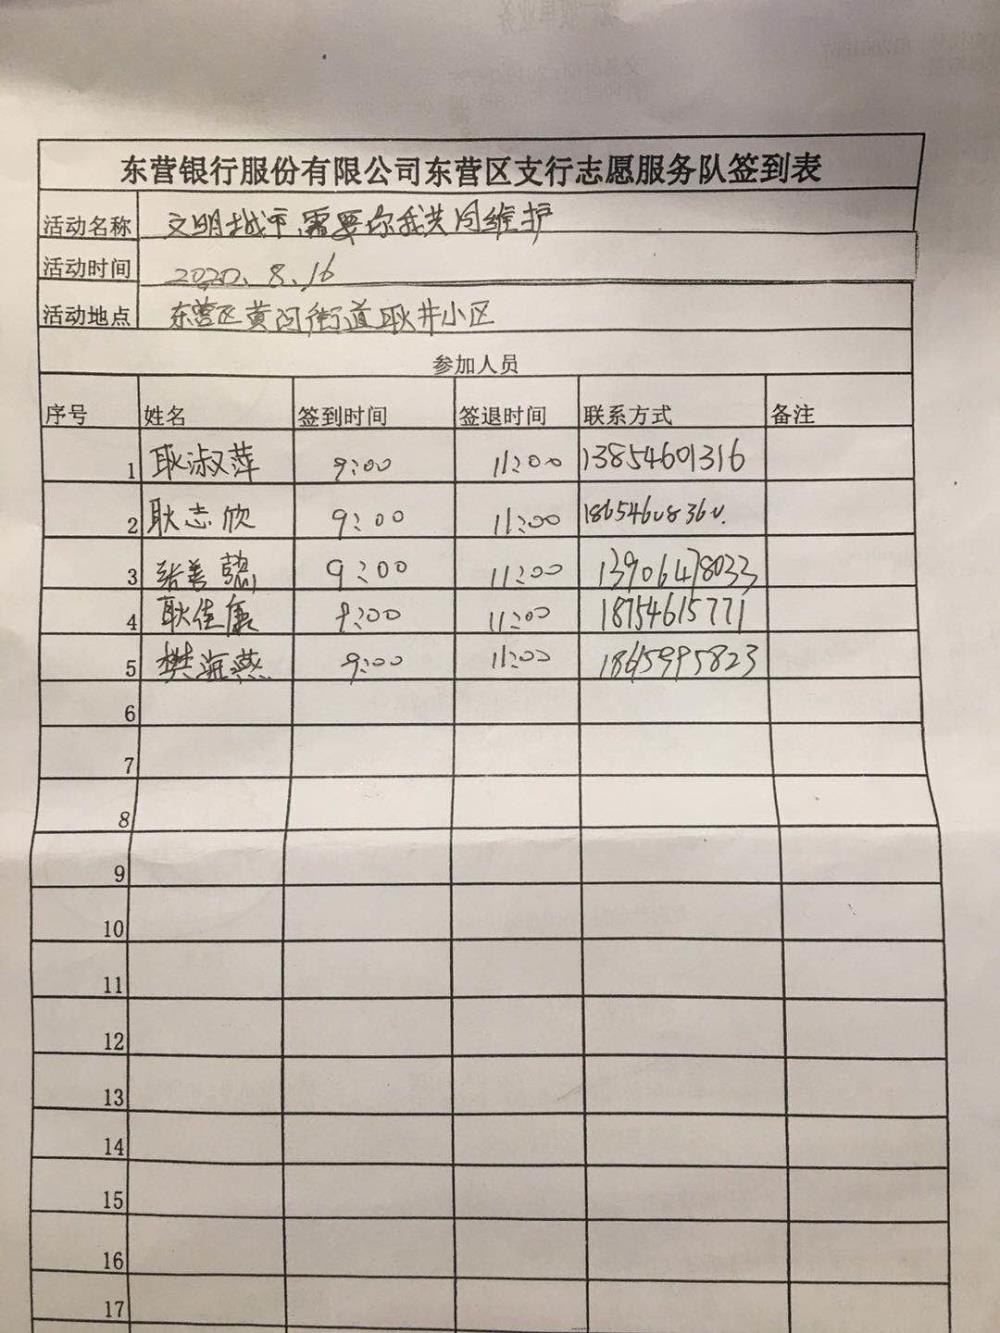 东营银行服份有限公司东营区支行志愿服务队签到表
活动名称 文明城市,需要你我共同维护
活动时间 2020.8.16
活动地点 东营区黄河街道耿井小区
参加人员
序号 姓名 签到时间 签退时间 联系方式 备注
1 耿淑萍 9:00 11:00 13854601316
2 耿志欣 9:00 11:00
3 张善懿 9:00 11:00 13906478033
4 耿佳康 9:00 11:00 18754615771
5 樊海燕 9:00 11:00 18615995823
6
7
8
9
10
11
12
13
14
15
16
17